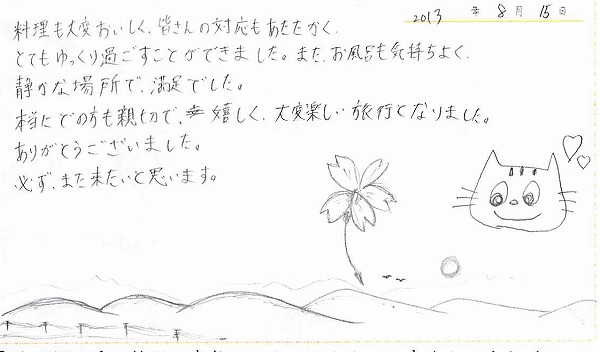 2013年8月15日
料理も大変おいしく、皆さんの対応もあたたかく、
とてもゆっくり過ごすことができました。また、お風呂も気持ちよく、
静かな場所で、満足でした。
本当にどの方も親切で、嬉しく、大変楽しい旅行となりました。
ありがとうございました。
必ず、また来たいと思います。